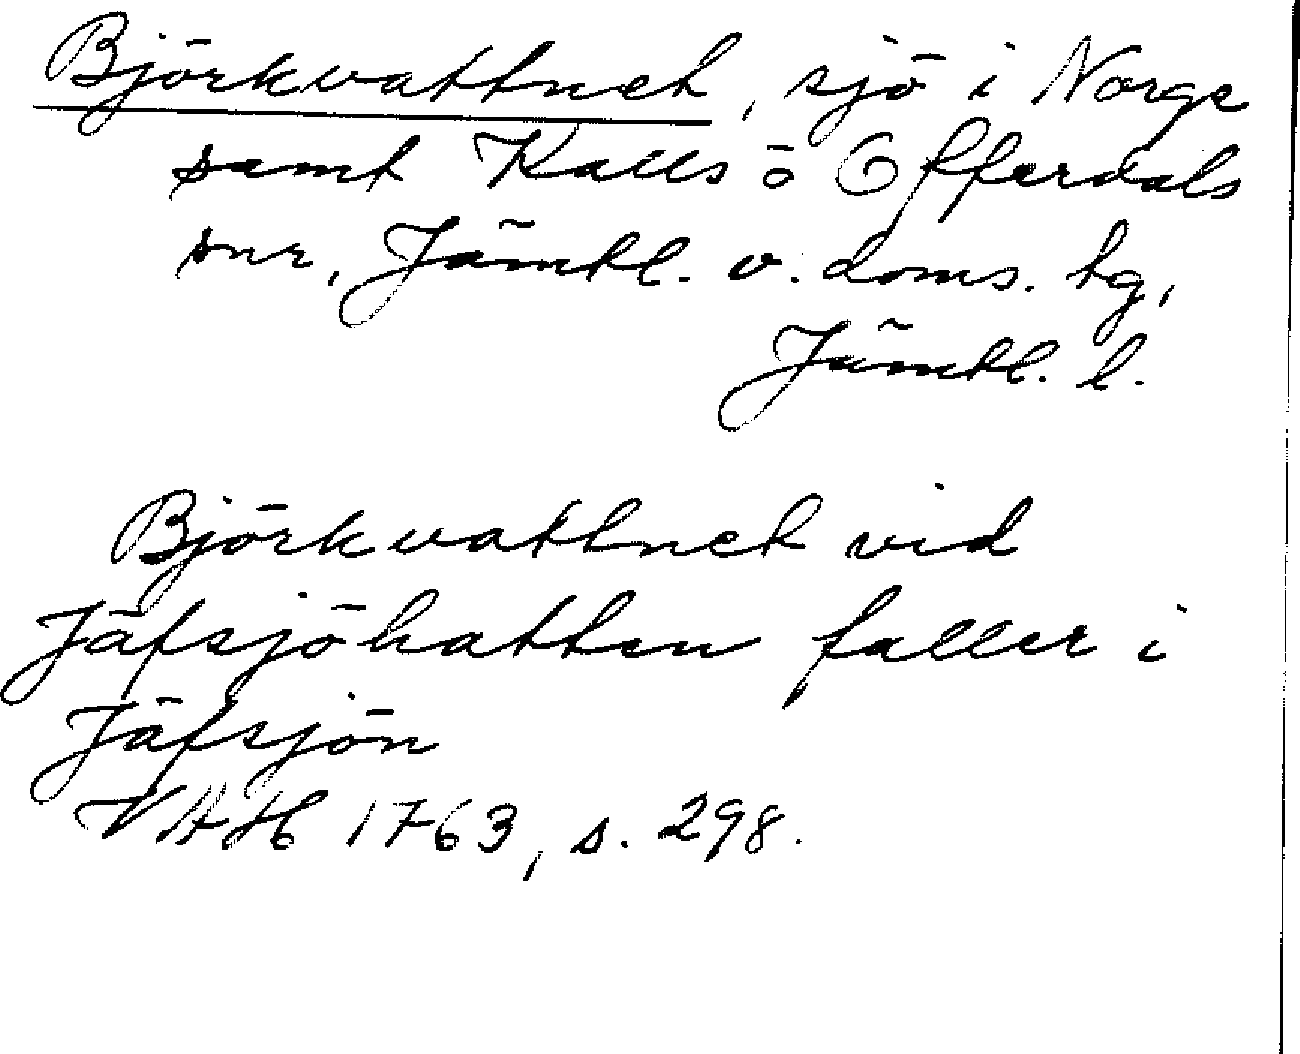 Björkvattnet, sjö i Norge
samt Kalls o Offerdals
snr, Jämtl. v. doms. tg,
Jämtl. l.
Björkvattnet vid
Jäfsjöhatten faller i
Jäfsjön
VAH 1763, s. 298.